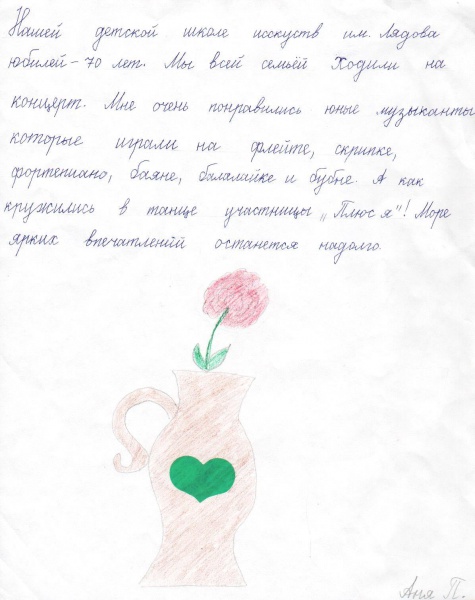 Нашей детской школе исскуств им. Лядова
юбилей - 70 лет. Мы всей семьёй Ходили на
концерт. Мне очень понравились юные музыканты
которые играли на флейте, скрипке,
фортепиано, баяне, балалайке и бубне. А как
кружились в танце участницы „Плюс я"! Море
ярких впечатлений останется надолго.
Аня П.